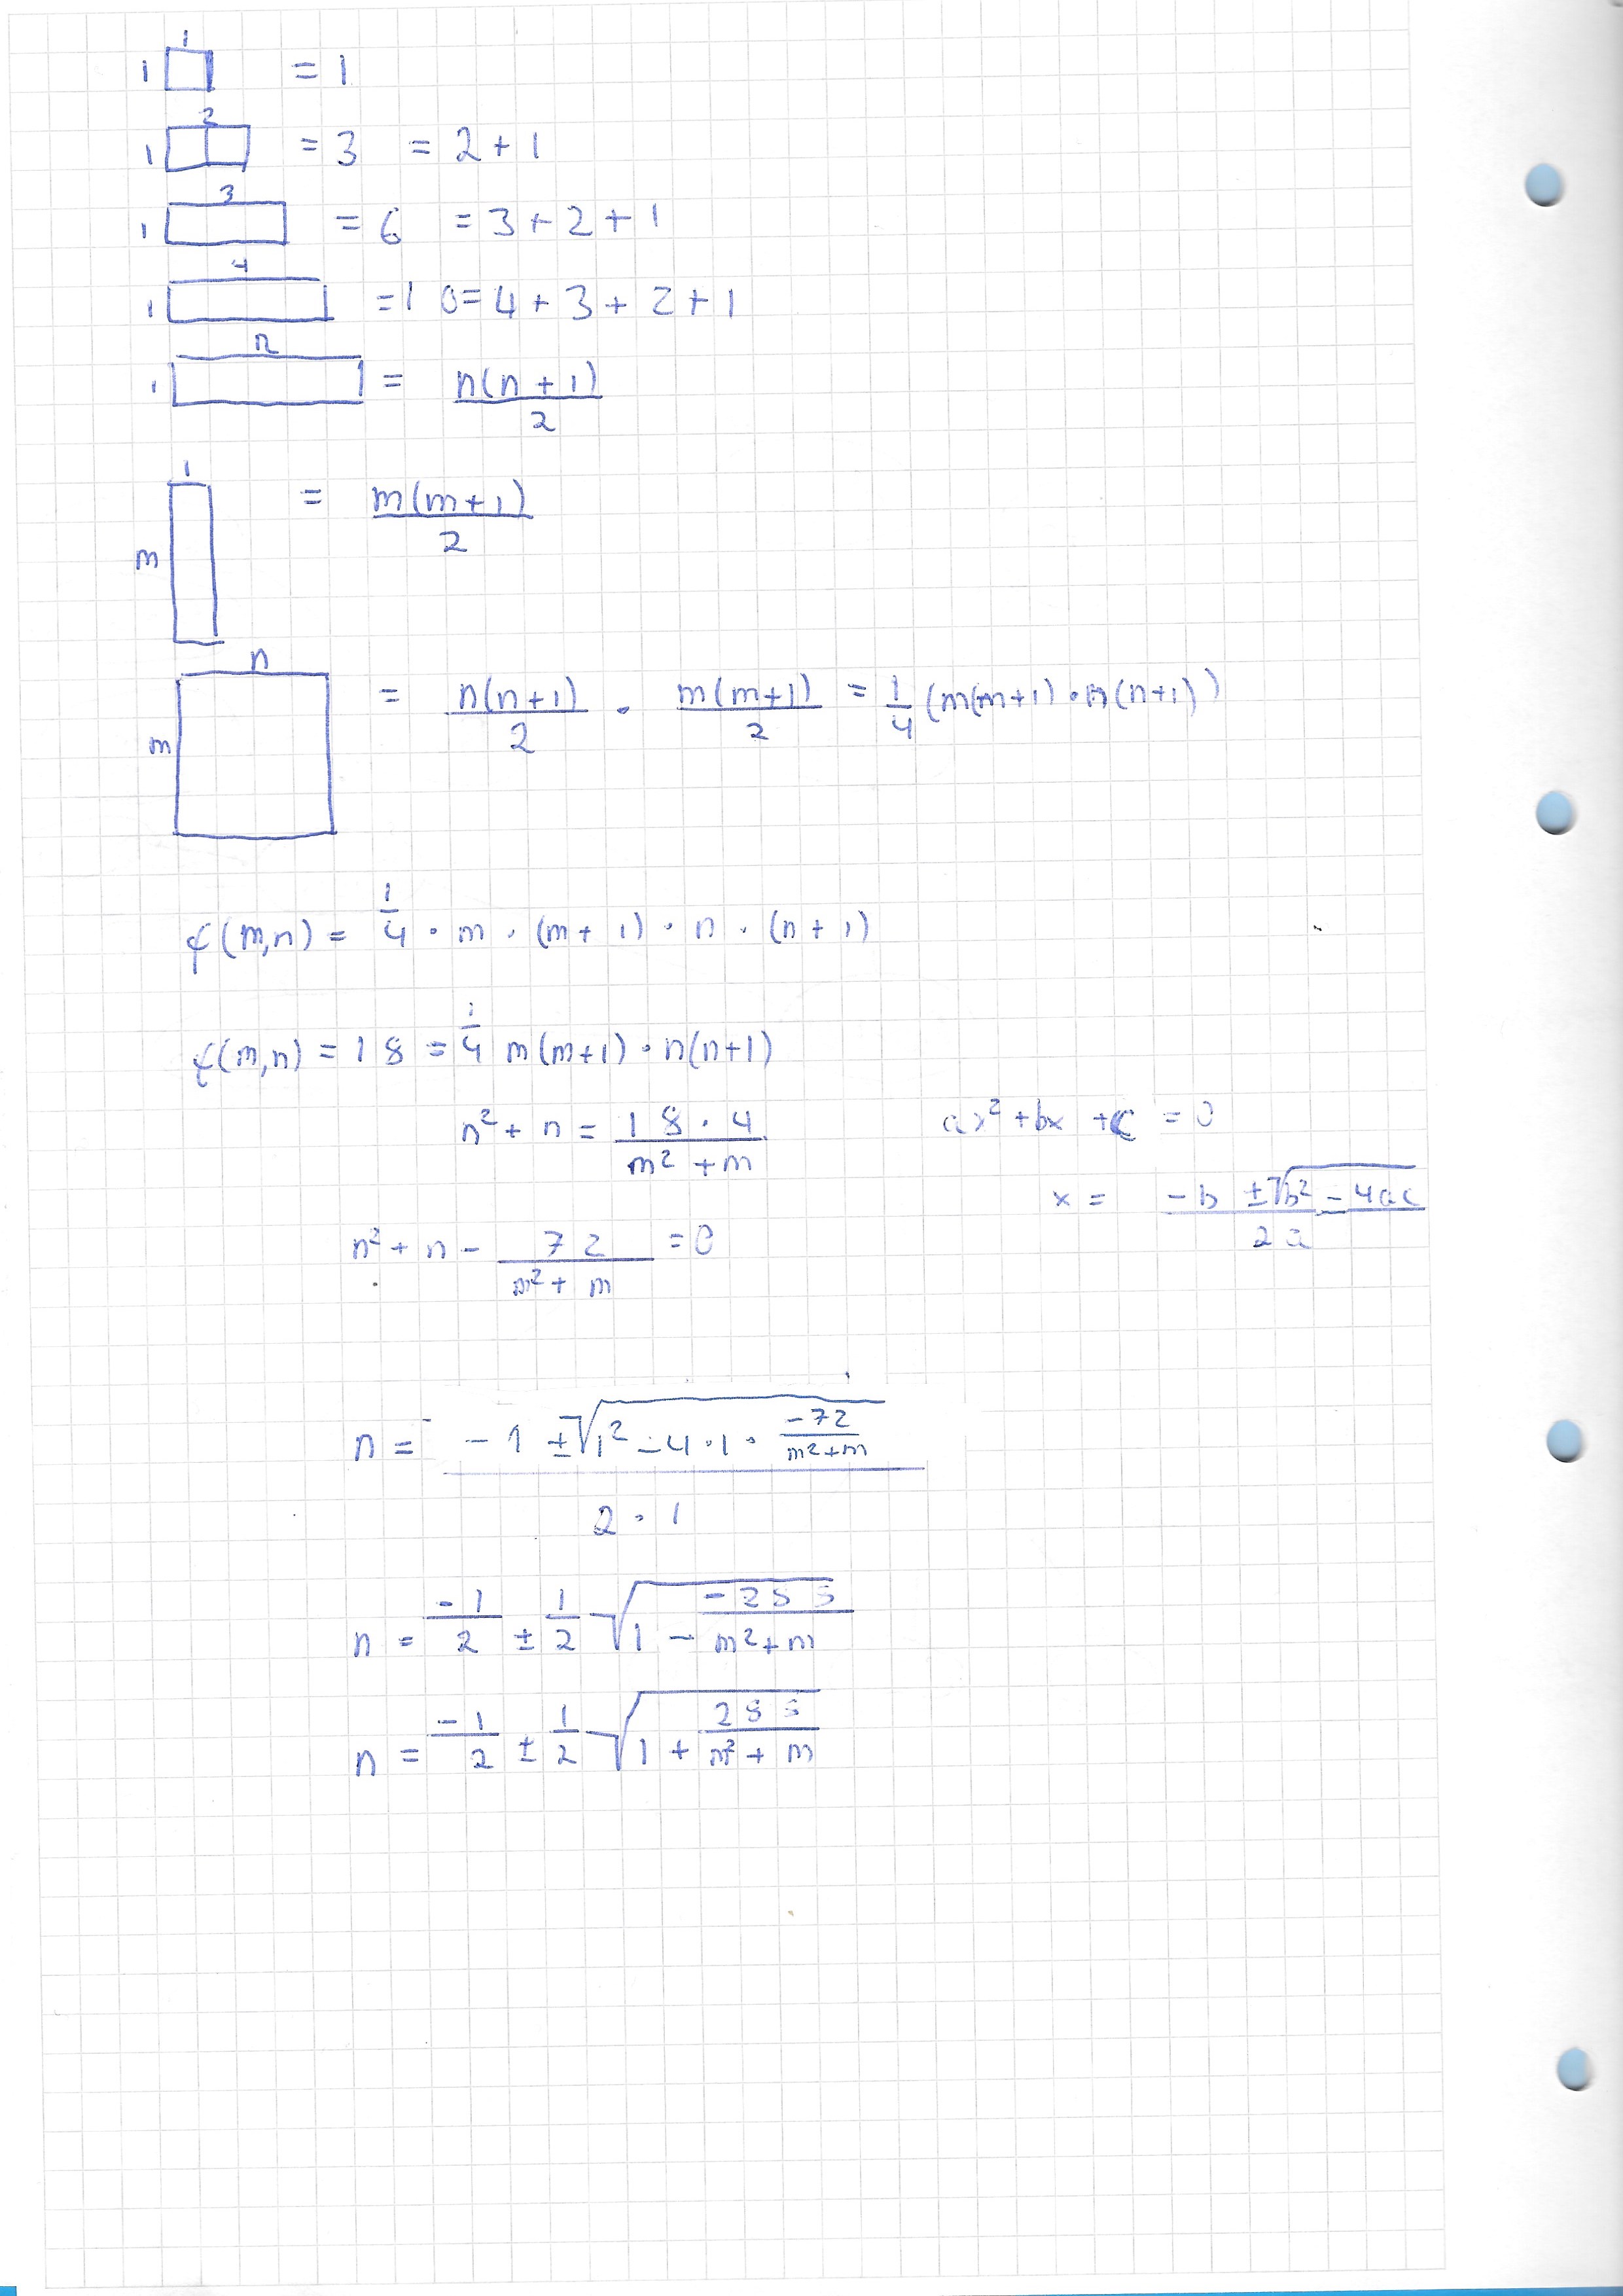 1
1 = 1
2
1 = 3 = 2 + 1
3
1 = 6 = 3 + 2 + 1
4
1 = 1 0 = 4 + 3 + 2 + 1
n
1 = n(n + 1) / 2
1
m = m(m+1) / 2
n
m = n(n+1) / 2 · m(m+1) / 2 = 1/4 (m(m+1) · n(n+1))
f(m,n) = 1/4 · m · (m + 1) · n · (n + 1)
f(m,n) = 1 8 = 1/4 m(m+1) · n(n+1)
n² + n = 1 8 · 4 / m² + m ax² + bx + c = 0
x = -b ± √b² - 4ac / 2a
n² + n - 7 2 / m² + m = 0
n = -1 ± √1² - 4·1· -72 / m²+m / 2 · 1
n = -1/2 ± 1/2 √1 - -288 / m² + m
n = -1/2 ± 1/2 √1 + 288 / m² + m